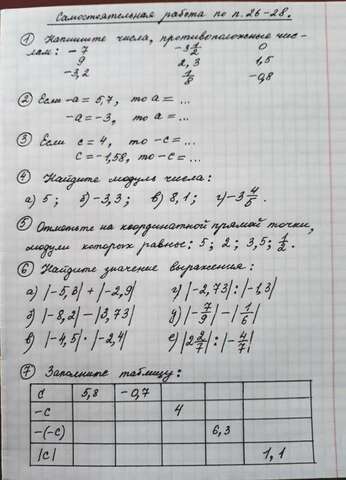 Самостоятельная работа по п. 26-28.
① Напишите числа, противоположные чис-
лам: -7 -3 1/2 0
9 2,3 1,5
-3,2 1/8 -0,8
② Если -а = 5,7, то а = ...
-а = -3, то а = ...
③ Если с = 4, то -с = ...
с = -1,58, то -с = ...
④ Найдите модуль числа:
а) 5; б) -3,3; в) 8,1; г) -3 4/5.
⑤ Отметьте на координатной прямой точки,
модули которых равны: 5; 2; 3,5; 1/2.
⑥ Найдите значение выражения:
а) |-5,8| + |-2,9| г) |-2,73| : |-1,3|
б) |-8,2| - |3,73| д) |-7/9| - |1/6|
в) |-4,5| · |-2,4| е) |2 2/7| : |-4/7|
⑦ Заполните таблицу:
с 5,8 -0,7
-с 4
-(-с) 6,3
|с| 1,1